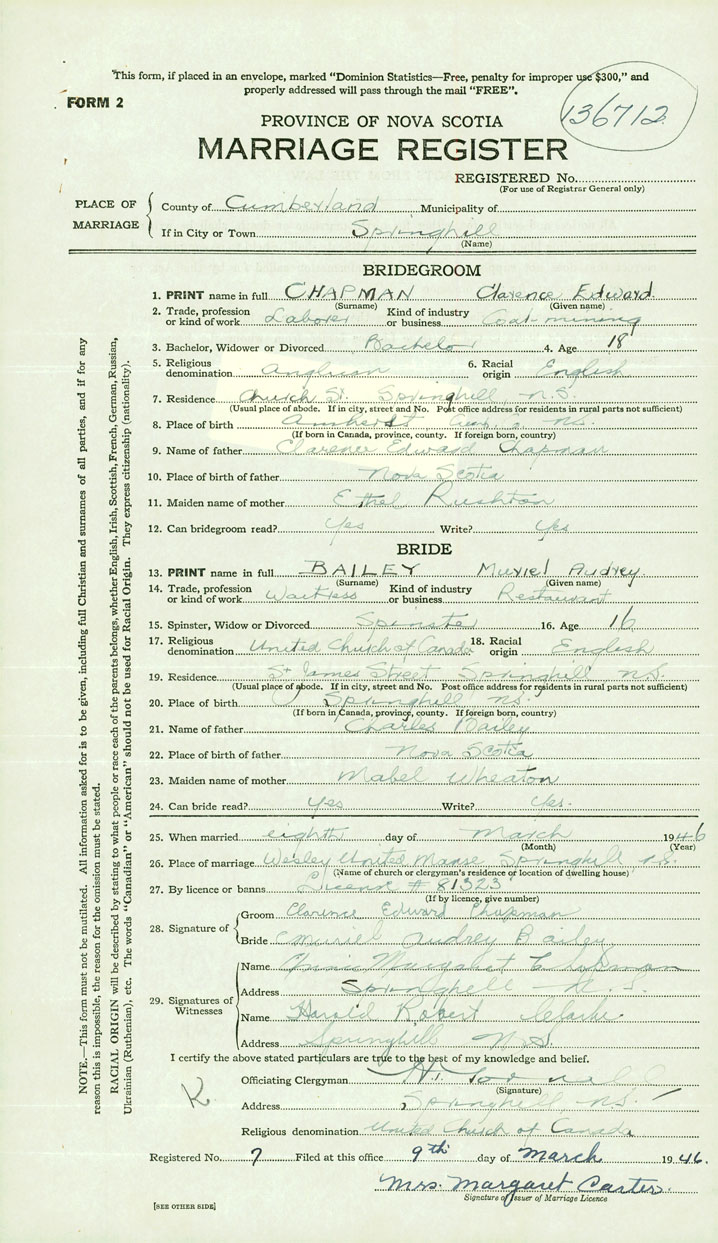 This form, if placed in an envelope, marked "Dominion Statistics—Free, penalty for improper use $300," and
properly addressed will pass through the mail "FREE".
FORM 2
136712
PROVINCE OF NOVA SCOTIA
MARRIAGE REGISTER
REGISTERED No.
(For use of Registrar General only)
PLACE OF MARRIAGE
County of Cumberland Municipality of
If in City or Town Springhill
(Name)
BRIDEGROOM
1. PRINT name in full CHAPMAN Clarence Edward
(Surname) (Given name)
2. Trade, profession or kind of work Laborer Kind of industry or business Coal-mining
3. Bachelor, Widower or Divorced Bachelor 4. Age 18
5. Religious denomination Anglican 6. Racial origin English
7. Residence Church St. Springhill, N.S.
(Usual place of abode. If in city, street and No. Post office address for residents in rural parts not sufficient)
8. Place of birth Amherst N.S.
(If born in Canada, province, county. If foreign born, country)
9. Name of father Clarence Edward Chapman
10. Place of birth of father Nova Scotia
11. Maiden name of mother Ethel Rushton
12. Can bridegroom read? Yes Write? Yes
BRIDE
13. PRINT name in full BAILEY Muriel Audrey
(Surname) (Given name)
14. Trade, profession or kind of work Waitress Kind of industry or business Restaurant
15. Spinster, Widow or Divorced Spinster 16. Age 16
17. Religious denomination United Church of Canada 18. Racial origin English
19. Residence St James Street Springhill N.S.
(Usual place of abode. If in city, street and No. Post office address for residents in rural parts not sufficient)
20. Place of birth Springhill N.S.
(If born in Canada, province, county. If foreign born, country)
21. Name of father Charles Bailey
22. Place of birth of father Nova Scotia
23. Maiden name of mother Mabel Wheaton
24. Can bride read? Yes Write? Yes.
25. When married eighth day of March 1946
(Month) (Year)
26. Place of marriage Wesley United Manse Springhill N.S.
(Name of church or clergyman's residence or location of dwelling house)
27. By licence or banns License # 81323
(If by licence, give number)
28. Signature of
Groom Clarence Edward Chapman
Bride Muriel Audrey Bailey
29. Signatures of Witnesses
Name Margaret Chapman
Address Springhill N.S.
Name Harold Robert
Address Springhill N.S.
I certify the above stated particulars are true to the best of my knowledge and belief.
Officiating Clergyman
(Signature)
K
Address Springhill N.S.
Religious denomination United Church of Canada
Registered No. 7 Filed at this office 9th day of March 1946.
Mrs. Margaret Carter.
Signature of Issuer of Marriage Licence
[SEE OTHER SIDE]
NOTE.—This form must not be mutilated. All information asked for is to be given, including full Christian and surnames of all parties, and if for any
reason this is impossible, the reason for the omission must be stated.
RACIAL ORIGIN will be described by stating to what people or race each of the parents belongs, whether English, Irish, Scottish, French, German, Russian,
Ukrainian (Ruthenian), etc. The words "Canadian" or "American" should not be used for Racial Origin. They express citizenship (nationality).